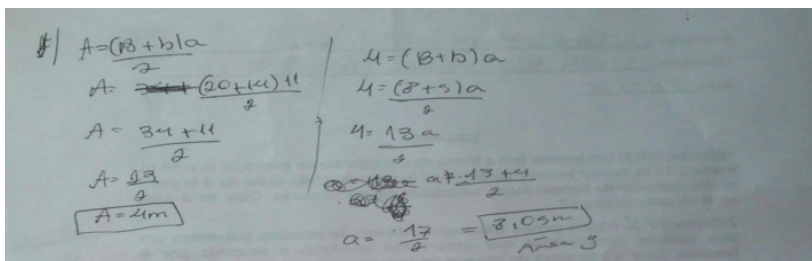 A=(B+b)a
2
A= (20+14)11
2
A= 34+11
2
A= 23
2
A=4m
4=(B+b)a
4=(8+5)a
2
4=13a
2
a= 13+4
2
a= 17 = 8,05m
2